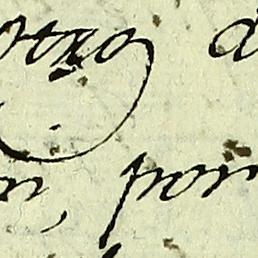 otro d
n, por